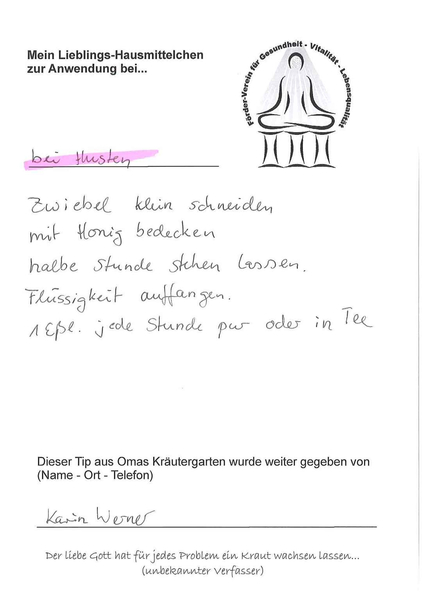 Mein Lieblings-Hausmittelchen
zur Anwendung bei...
Förder-Verein für Gesundheit - Vitalität - Lebensqualität
bei Husten
Zwiebel klein schneiden
mit Honig bedecken
halbe Stunde stehen lassen.
Flüssigkeit auffangen.
1 Eßl. jede Stunde pur oder in Tee
Dieser Tip aus Omas Kräutergarten wurde weiter gegeben von
(Name - Ort - Telefon)
Karin Werner
Der liebe Gott hat für jedes Problem ein Kraut wachsen lassen...
(unbekannter Verfasser)